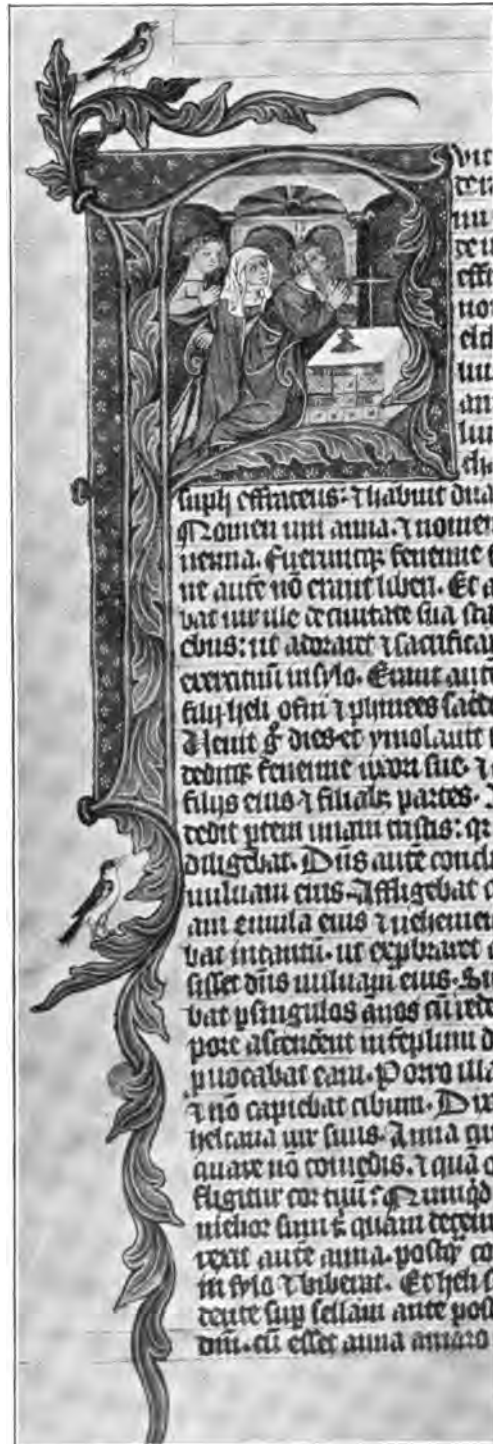 vit
effr
no
elch
suph effrateus: ⁊ habuit dua
Nomen uni anna. ⁊ nomen
nenna. Fuerunt{q}ꝫ fenenne
ne autē nō erant liberi. Et a
bat uir ille de ciuitate sua sta
ebus: ut adoraret ⁊ sacrificar
exercituū in sylo. Erant autē
filij heli ofni ⁊ phinees sacer
Uenit g̊ dies et ymolauit
deditqꝫ fenenne uxori sue ⁊
filijs eius ⁊ filiabꝫ partes.
dedit ptem unam tristis: qr
diligebat. Dn̄s autē conclu
uuluam eius. Affligebat
am emula eius ⁊ uehemen
bat intantū. ut exprobraret
sisset dn̄s uuluam eius. Si
bat p singulos ānos cū rede
pore ascenderent in tēplum d
puocabat eam. Porro illa
⁊ nō capiebat cibum. Dix
helcana uir suus. Anna cur
quare nō comedis. ⁊ quā o
fligitur cor tuū? Nunqd
melior sum t̄ quam decem
rexit autē anna. postq̄ co
in sylo ⁊ biberat. Et heli s
dente sup sellam ante pos
dni. cū esset anna amaro